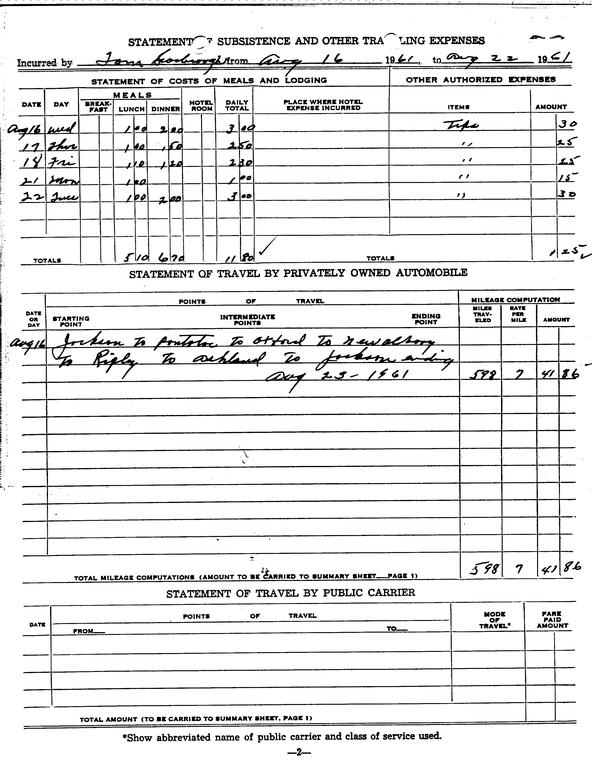 STATEMENT OF SUBSISTENCE AND OTHER TRAVELING EXPENSES
Incurred by Tom Scarbrough from Aug 16 1961, to Aug 22 1961
STATEMENT OF COSTS OF MEALS AND LODGING OTHER AUTHORIZED EXPENSES
DATE DAY MEALS BREAK-FAST LUNCH DINNER HOTEL ROOM DAILY TOTAL PLACE WHERE HOTEL EXPENSE INCURRED ITEMS AMOUNT
Aug 16 Wed 1 00 2 00 3 00 Tips 30
17 Thur 1 00 1 50 2 50 " 25
18 Fri 1 10 1 20 2 30 " 25
21 Mon 1 00 1 00 " 15
22 Tues 1 00 2 00 3 00 " 30
TOTALS 5 10 6 70 11 80 ✓ TOTALS 1 25 ✓
STATEMENT OF TRAVEL BY PRIVATELY OWNED AUTOMOBILE
POINTS OF TRAVEL MILEAGE COMPUTATION
DATE OR DAY STARTING POINT INTERMEDIATE POINTS ENDING POINT MILES TRAV-ELED RATE PER MILE AMOUNT
Aug 16 Jackson to Pontotoc to Oxford to New Albany
to Riply to Ashland to Jackson ending
Aug 23 - 1961 598 7 41 86
TOTAL MILEAGE COMPUTATIONS (AMOUNT TO BE CARRIED TO SUMMARY SHEET PAGE 1) 598 7 41 86
STATEMENT OF TRAVEL BY PUBLIC CARRIER
DATE POINTS OF TRAVEL MODE OF TRAVEL* FARE PAID AMOUNT
FROM TO
TOTAL AMOUNT (TO BE CARRIED TO SUMMARY SHEET, PAGE 1)
*Show abbreviated name of public carrier and class of service used.
—2—